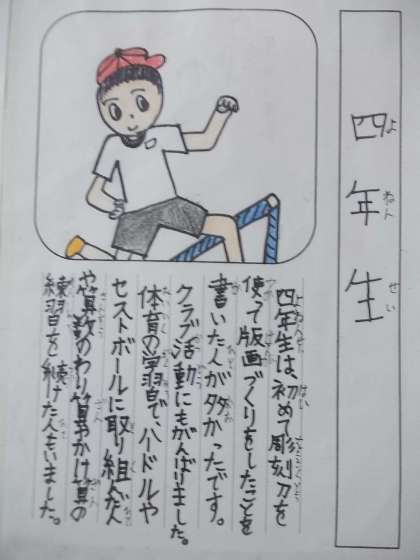 四年生
よねんせい
四年生は、初めて彫刻刀を
使って版画づくりをしたことを
書いた人が多かったです。
クラブ活動にもがんばりました。
体育の学習で、ハードルや
セストボールに取り組んだ人
や算数のわり算やかけ算の
練習を続けた人もいました。